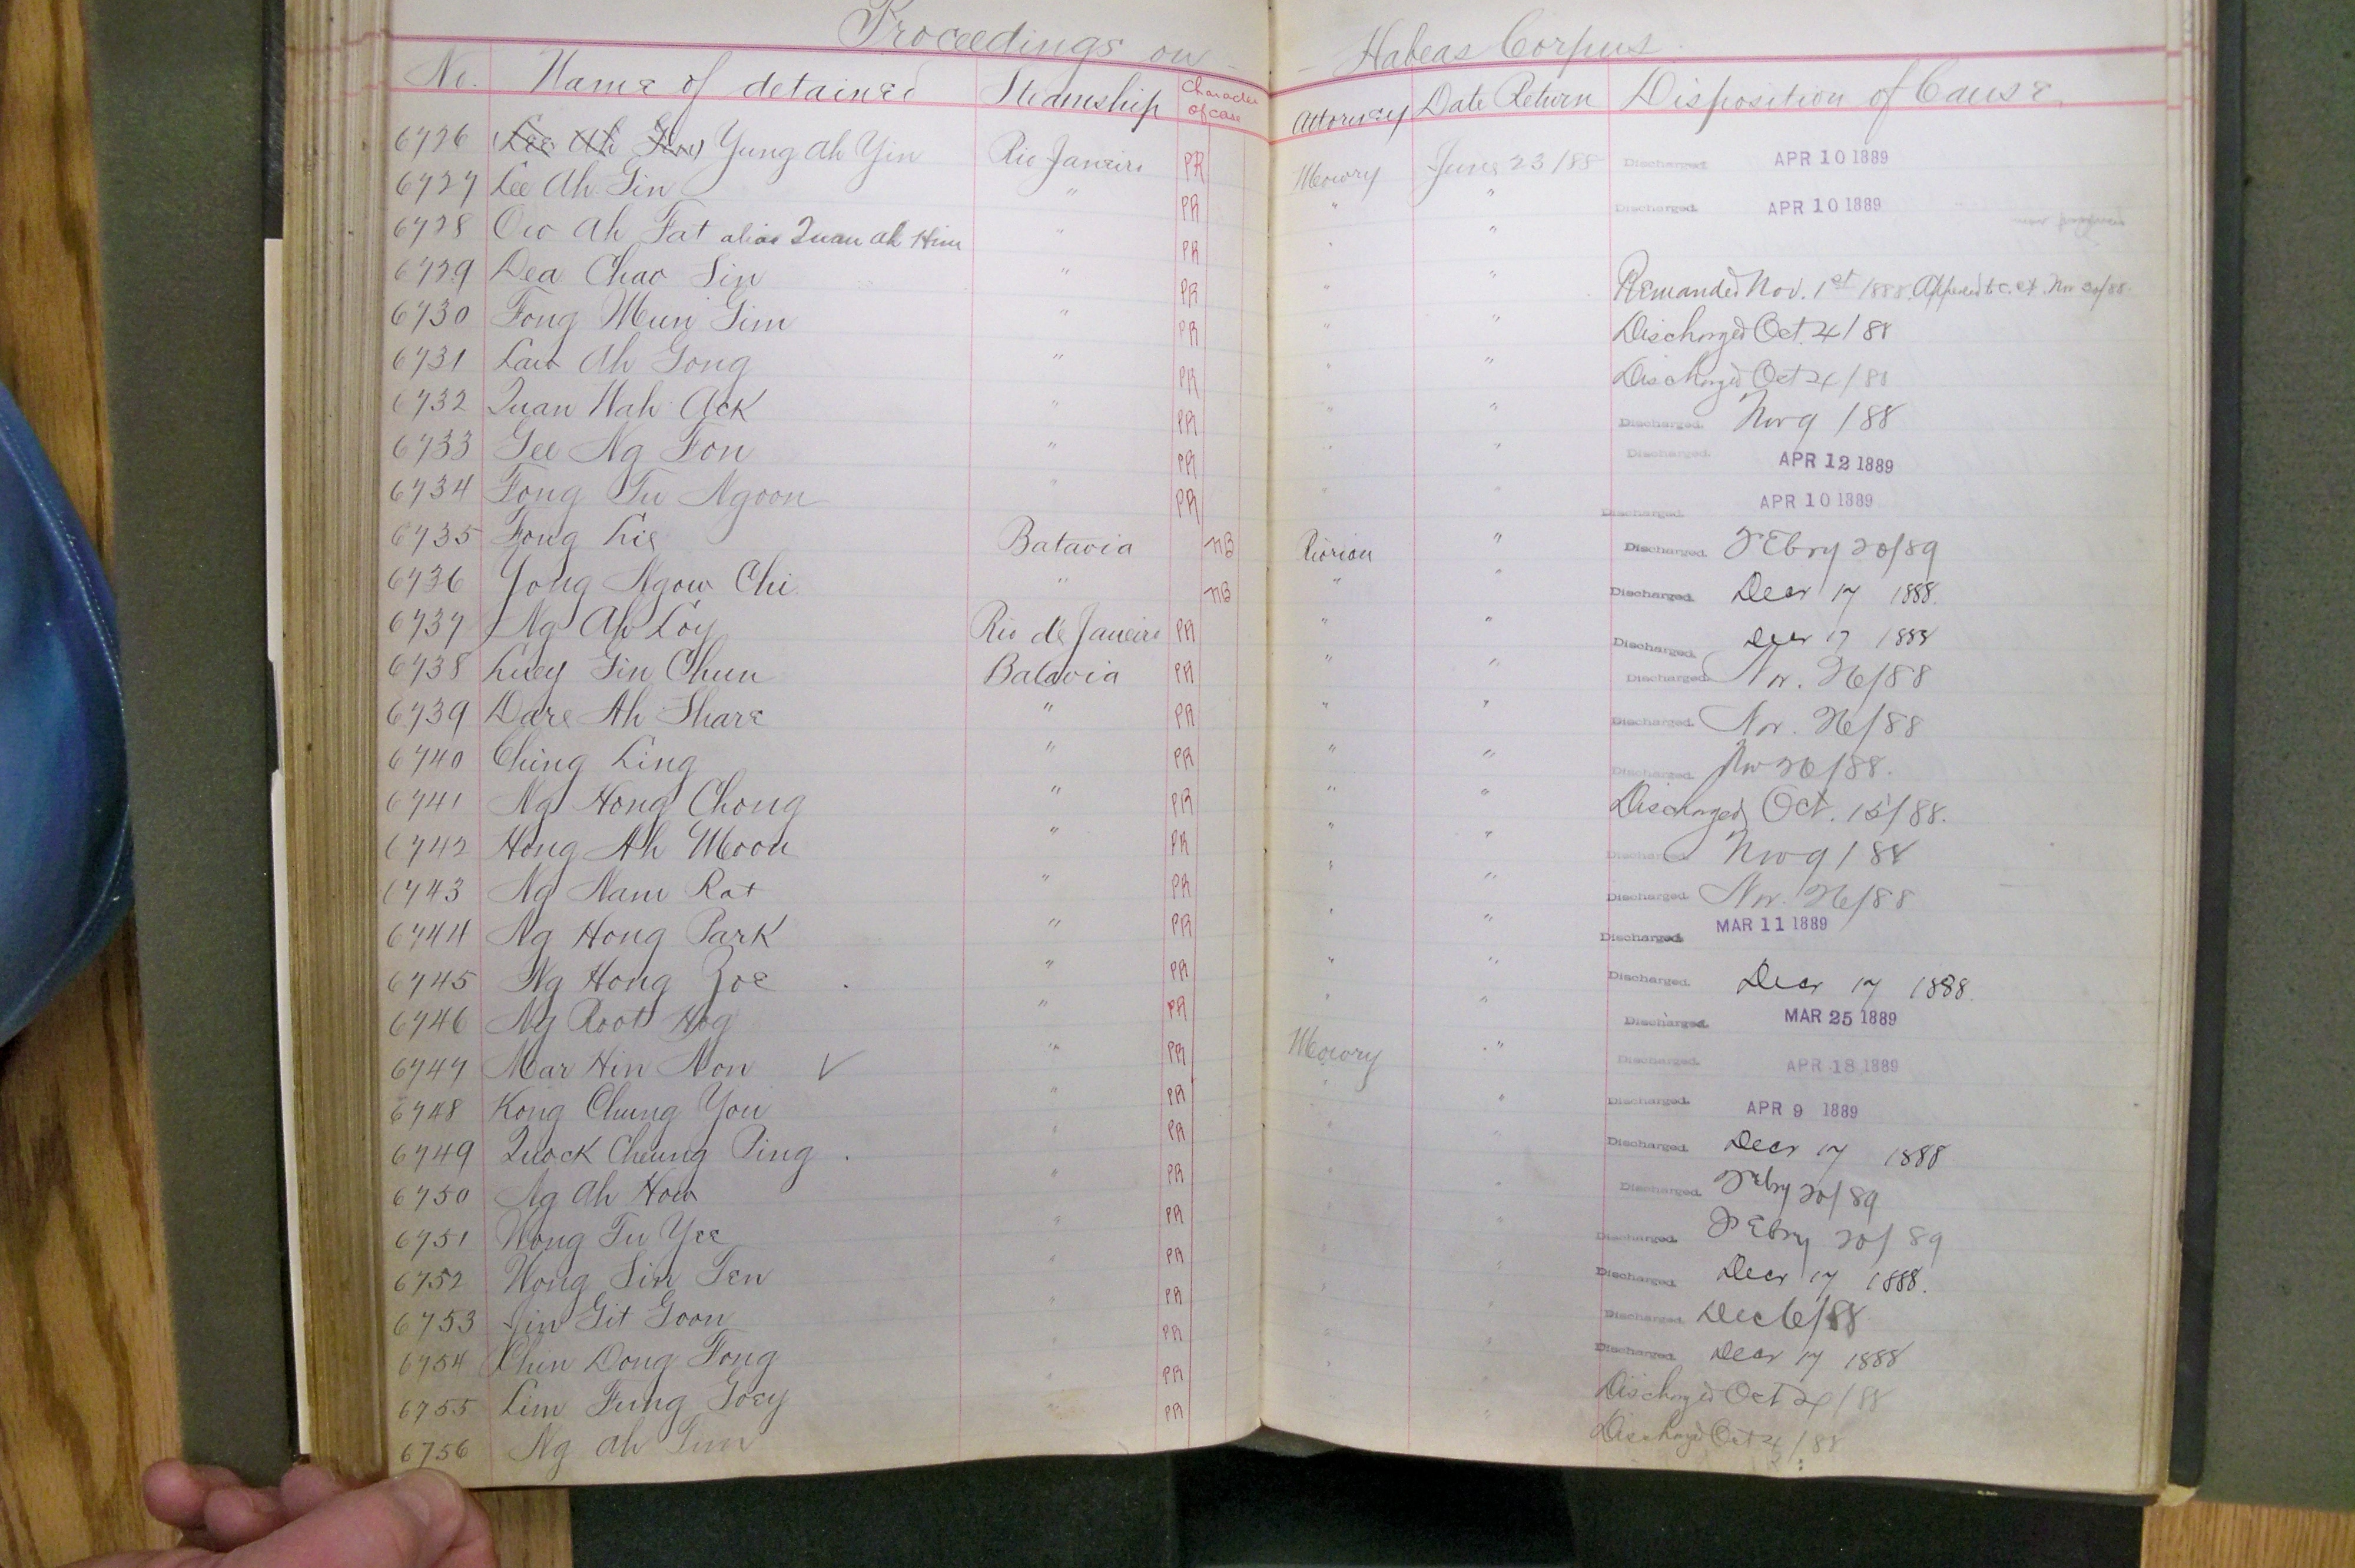 Proceedings on - - Habeas Corpus.
No. Name of detained Steamship Character of case Attorney Date Return Disposition of Cause.
6726 Yung Ah Yin Rio Janeiro PR Mowry June 23/88 Discharged. APR 10 1889
6727 Lee Ah Gin " PR " " Discharged. APR 10 1889
6728 Oio Ah Fat alias Quan Ah Him " PR " "
6729 Dea Chao Sin " PR " " Remanded Nov. 1st 1888. Appealed to C. Ct. Nov 30/88.
6730 Fong Mun Gim " PR " " Discharged Oct. 4/88
6731 Law Ah Gong " PR " " Discharged Oct 4/88
6732 Quan Wah Ack " PR " " Discharged. Nov 9 /88
6733 Gee Ng Fon " PR " " Discharged. APR 12 1889
6734 Fong Tu Ngoon " PR " " Discharged. APR 10 1889
6735 Fong Lie Batavia NB Riorian " Discharged. Febry 20/89
6736 Yong Ngow Chi " NB " " Discharged. Decr 17 1888.
6737 Ng Ah Loy Rio de Janeiro PR " " Discharged. Decr 17 1888
6738 Luey Gin Chun Batavia PR " " Discharged. Nov. 26/88
6739 Dare Ah Share " PR " " Discharged. Nov. 26/88
6740 Ching Ling " PR " " Discharged. Nov 26/88.
6741 Ng Hong Chong " PR " " Discharged Oct. 15/88.
6742 Hong Ah Moon " PR " " Discharged. Nov 9 / 88
6743 Ng Nam Rat " PR " " Discharged. Nov. 26/88
6744 Ng Hong Park " PR " " Discharged. MAR 11 1889
6745 Ng Hong Joe " PR " " Discharged. Decr 17 1888.
6746 Ng Root Hog " PR " " Discharged. MAR 25 1889
6747 Mar Hin Non " PR Mowry " Discharged. APR 18 1889
6748 Kong Chung You " PR " " Discharged. APR 9 1889
6749 Quock Cheung Ping " PR " " Discharged. Decr 17 1888
6750 Ng Ah How " PR " " Discharged. Febry 20/89
6751 Wong Tu Yee " PR " " Discharged. Febry 20/89
6752 Wong Sin Ten " PR " " Discharged. Decr 17 1888.
6753 Jin Git Goon " PR " " Discharged. Dec 6/88
6754 Chin Dong Fong " PR " " Discharged. Decr 17 1888
6755 Lim Fung Joey " PR " " Discharged Oct 4/88
6756 Ng Ah Discharged Oct 4/88